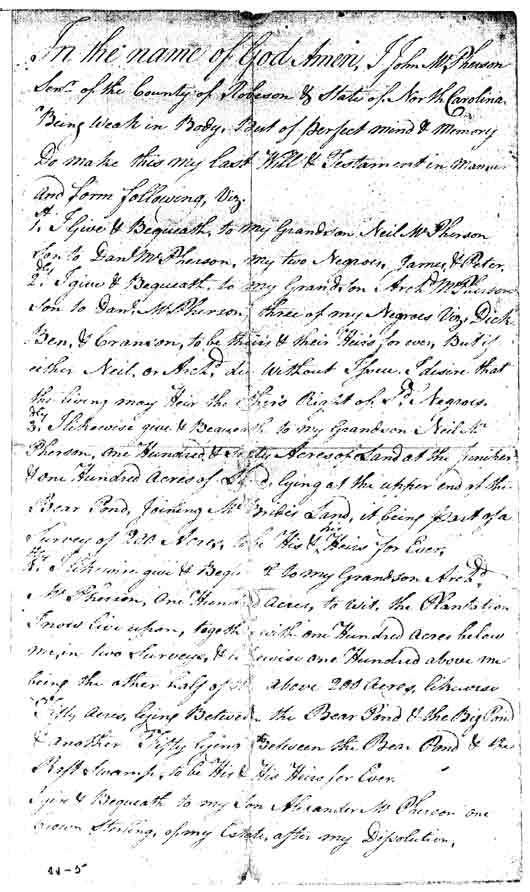 In the name of God Amen, I John McPherson
Senr. of the County of Robeson & State of North Carolina
Being Weak in Body, But of Perfect mind & Memory
Do make this my last Will & Testament in Manner
and form following, Viz.
1st. I Give & Bequeath, to my Grandson Neil McPherson
Son to Danl McPherson, my two Negroes, James & Peter.
2dly I give & Bequeath, to my Grandson Archd McPherson
Son to Danl. McPherson, three of my Negroes Viz, Dick
Ben, & Cranson, to be theirs & their Heirs for ever, But if
either Neil. or Archd. die Without Issue. I desire that
the living may Heir the Right of Sd. Negroes.
3dly I likewise give & Bequeath to my Grandson Neil Mc
Pherson, One Hundred, & Acres of Land at the
& one Hundred Acres of Land, lying at the upper end of the
Bear Pond, Joining Land, it being part of a
Survey of 200 Acres, to be His & his Heirs for Ever.
4thly I likewise give & to my Grandson Archd.
McPherson, One Hundred acres, to wit, the Plantation
I now Live upon, together with one Hundred acres below
me, in two Surveys, & likewise one Hundred above me
being the other half of the above 200 Acres, likewise
Fifty Acres, lying Between the Bear Pond & the Big Pond
& another Fifty lying Between the Bear Pond & the
Raft Swamp, to be His & His Heirs for Ever.
I give & Bequeath to my Son Alexander McPherson one
crown Sterling, of my Estate, after my Dissolution,
44-5